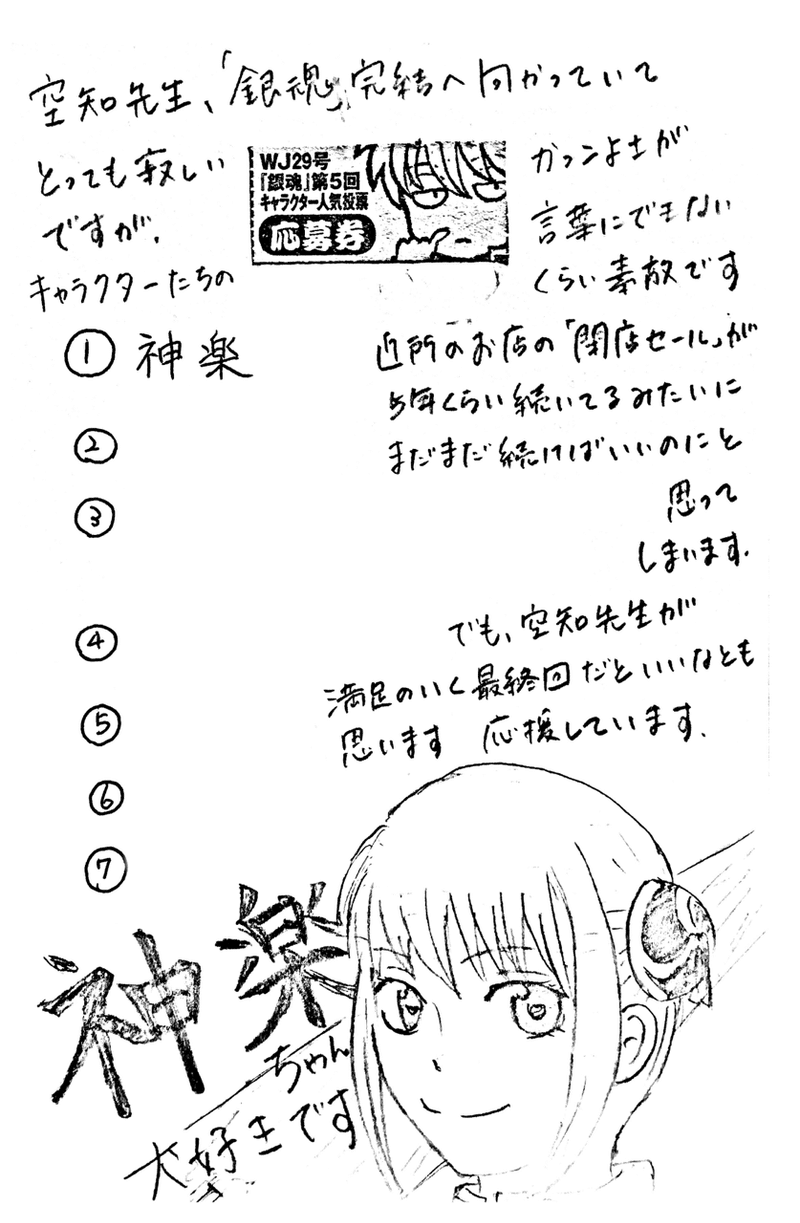 空知先生、「銀魂」完結へ向かっていて
とっても寂しい
ですが、
キャラクターたちの
WJ29号
『銀魂』第5回
キャラクター人気投票
応募券
カッコよさが
言葉にできない
くらい素敵です
① 神楽
②
③
④
⑤
⑥
⑦
近所のお店の「閉店セール」が
5年くらい続いてるみたいに
まだまだ続けばいいのにと
思って
しまいます。
でも、空知先生が
満足のいく最終回だといいなとも
思います 応援しています。
神楽
ちゃん
大好きです